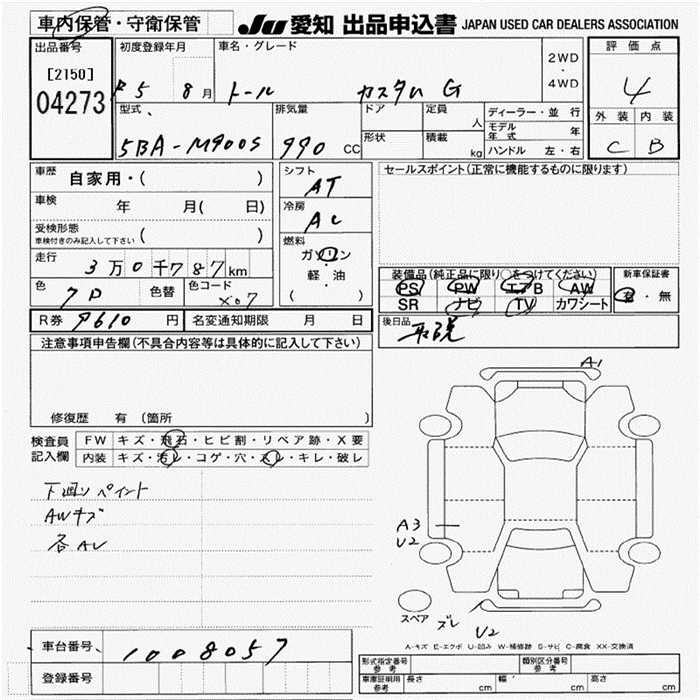 車内保管・守衛保管 JU 愛知 出品申込書 JAPAN USED CAR DEALERS ASSOCIATION
出品番号 初度登録年月 車名・グレード 2WD・4WD 評価点
[2150] R5 8月 トール カスタム G 4
04273 型式 排気量 ドア 定員 人 ディーラー・並行 外装 内装
5BA-M900S 990 CC 形状 積載 kg モデル年式 年 C B
ハンドル 左・右
車歴 自家用・( ) シフト AT セールスポイント(正常に機能するものに限ります)
車検 年 月( 日) 冷房 AC
受検形態 ( )
車検付きのみ記入して下さい
走行 3万0千787km 燃料 ガソリン・軽・油 ( )
装備品(純正品に限り○をつけてください) 新車保証書
色 色替 色コード X07 PS PW エアB AW 有・無
SR ナビ TV カワシート
R券 9610 円 名変通知期限 月 日 後日品 取説
注意事項申告欄(不具合内容等は具体的に記入して下さい)
修復歴 有 (箇所
検査員記入欄 FW キズ・飛石・ヒビ割・リペア跡・X要
内装 キズ・汚レ・コゲ・穴・スレ・キレ・破レ
下廻り ペイント
AWキズ
各AU
A1
A3
U2
スペア ズレ U2
A-キズ E-エクボ U-凹み W-補修跡 S-サビ C-腐食 XX-交換済
車台番号 1008057
登録番号
形式指定番号 参考 類別区分番号 参考
車庫証明用 参考 長さ cm 幅 cm 高さ cm